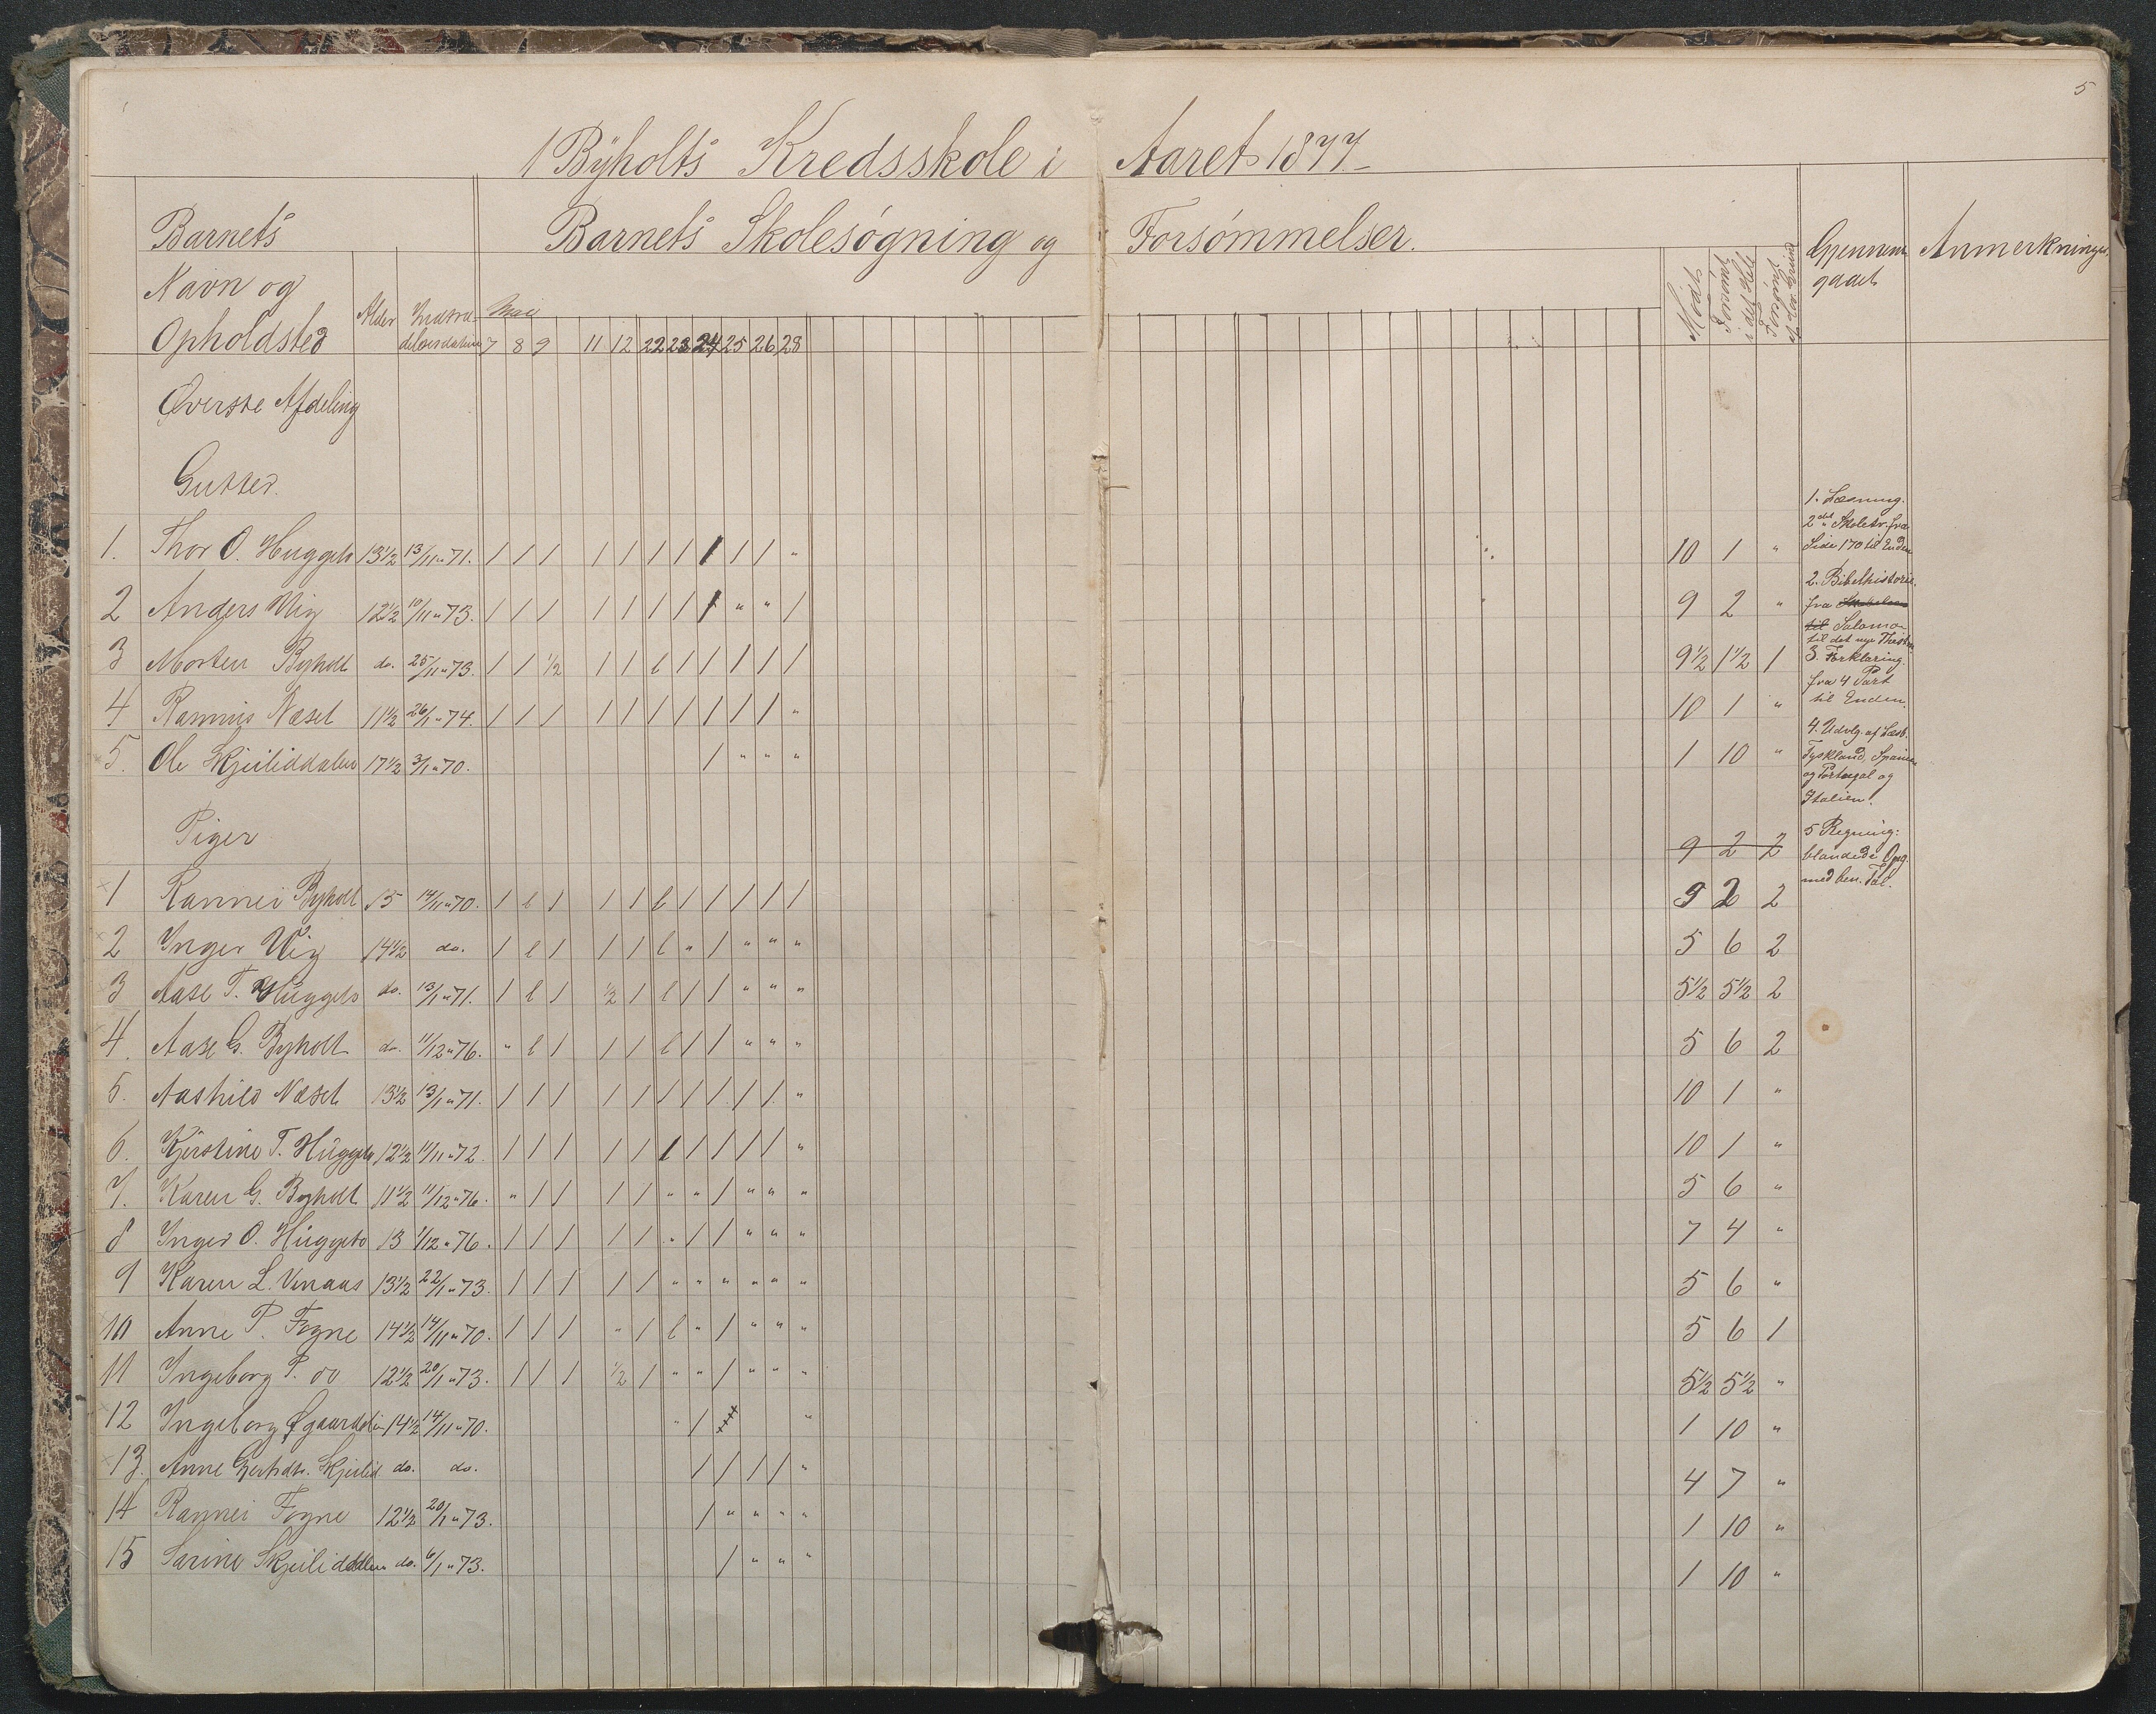 5
I Byholts Kredsskole i Aaret 1877.
Barnets
Barnets Skolesøgning og Forsømmelser.
Navn og
Opholdsted
Alder
Mai
7 8 9 11 12 22 23 24 25 26 28
Mødt
Forsømt i det Hele
Forsømt af lov. Grund
Gjennem
gaaet
Anmerkninger.
Øverste Afdeling
Gutter.
1. Thor O. Huggeto 13½ 13/11 „ 71. / / / / / / / / / / „ 10 1 „
2 Anders Vig 12½ 10/11 „ 73. / / / / / / / / „ „ / 9 2 „
3 Morten Byholt do. 25/11 „ 73. / / ½ / / l / / / / / 9½ 1½ 1
4 Rasmus Næset 11½ 26/1 „ 74. / / / / / / / / / / „ 10 1 „
5. Ole Skjeliddalen 17½ 3/1 „ 70. / „ „ „ 1 10 „
Piger
9 2 2
1 Rannei Byholt 15 14/11 „ 70. / l / / / l / / / / / 9 2 2
2 Inger Vig 14½ do. / l / / / l „ / „ „ „ 5 6 2
3 Aase T. Huggeto do. 13/1 „ 71. / l / ½ / l / / „ „ „ 5½ 5½ 2
4. Aase G. Byholt do. 11/12 „ 76. „ l / / / l / / „ „ „ 5 6 2
5. Aashild Næset 13½ 13/1 „ 71. / / / / / / / / / / „ 10 1 „
6. Kjerstine T. Huggeto 12½ 11/11 „ 72. / / / / / / / / / / „ 10 1 „
7. Karen G. Byholt 11½ 11/12 „ 76. „ / / / / „ „ / „ „ „ 5 6 „
8 Inger O. Huggeto 13 1/12 „ 76. / / / / / „ / / „ „ „ 7 4 „
9 Karen L. Vinaas 13½ 22/1 „ 73. / / / / / „ „ „ „ „ „ 5 6 „
10 Anne P. Fogne 14½ 14/11 „ 70. / / / „ / l „ / „ „ „ 5 6 1
11 Ingeborg P. do 12½ 20/1 „ 73. / / / ½ / „ „ / „ „ „ 5½ 5½ „
12 Ingeborg Øgaarddalen 14½ 14/11 „ 70. „ / „ 1 10 „
13. Anne Gertsdtr. Skjelid do. do. / / / / „ 4 7 „
14 Rannei Fogne 12½ 20/1 „ 73. / „ „ „ „ 1 10 „
15 Sarine Skjeliddalen do. 6/1 „ 73. / „ „ „ 1 10 „
1. Læsning.
2det Skoletr. fra
Side 170 til Enden
2. Bibelhistorie.
fra
til Salomo
til det nye Testm.
3. Forklaring.
fra 4 Part
til Enden.
4. Udvlg. af Læsb.
Tyskland, Spanien
og Portugal og
Italien.
5 Regning:
blandede Opg.
med ben. Tal.